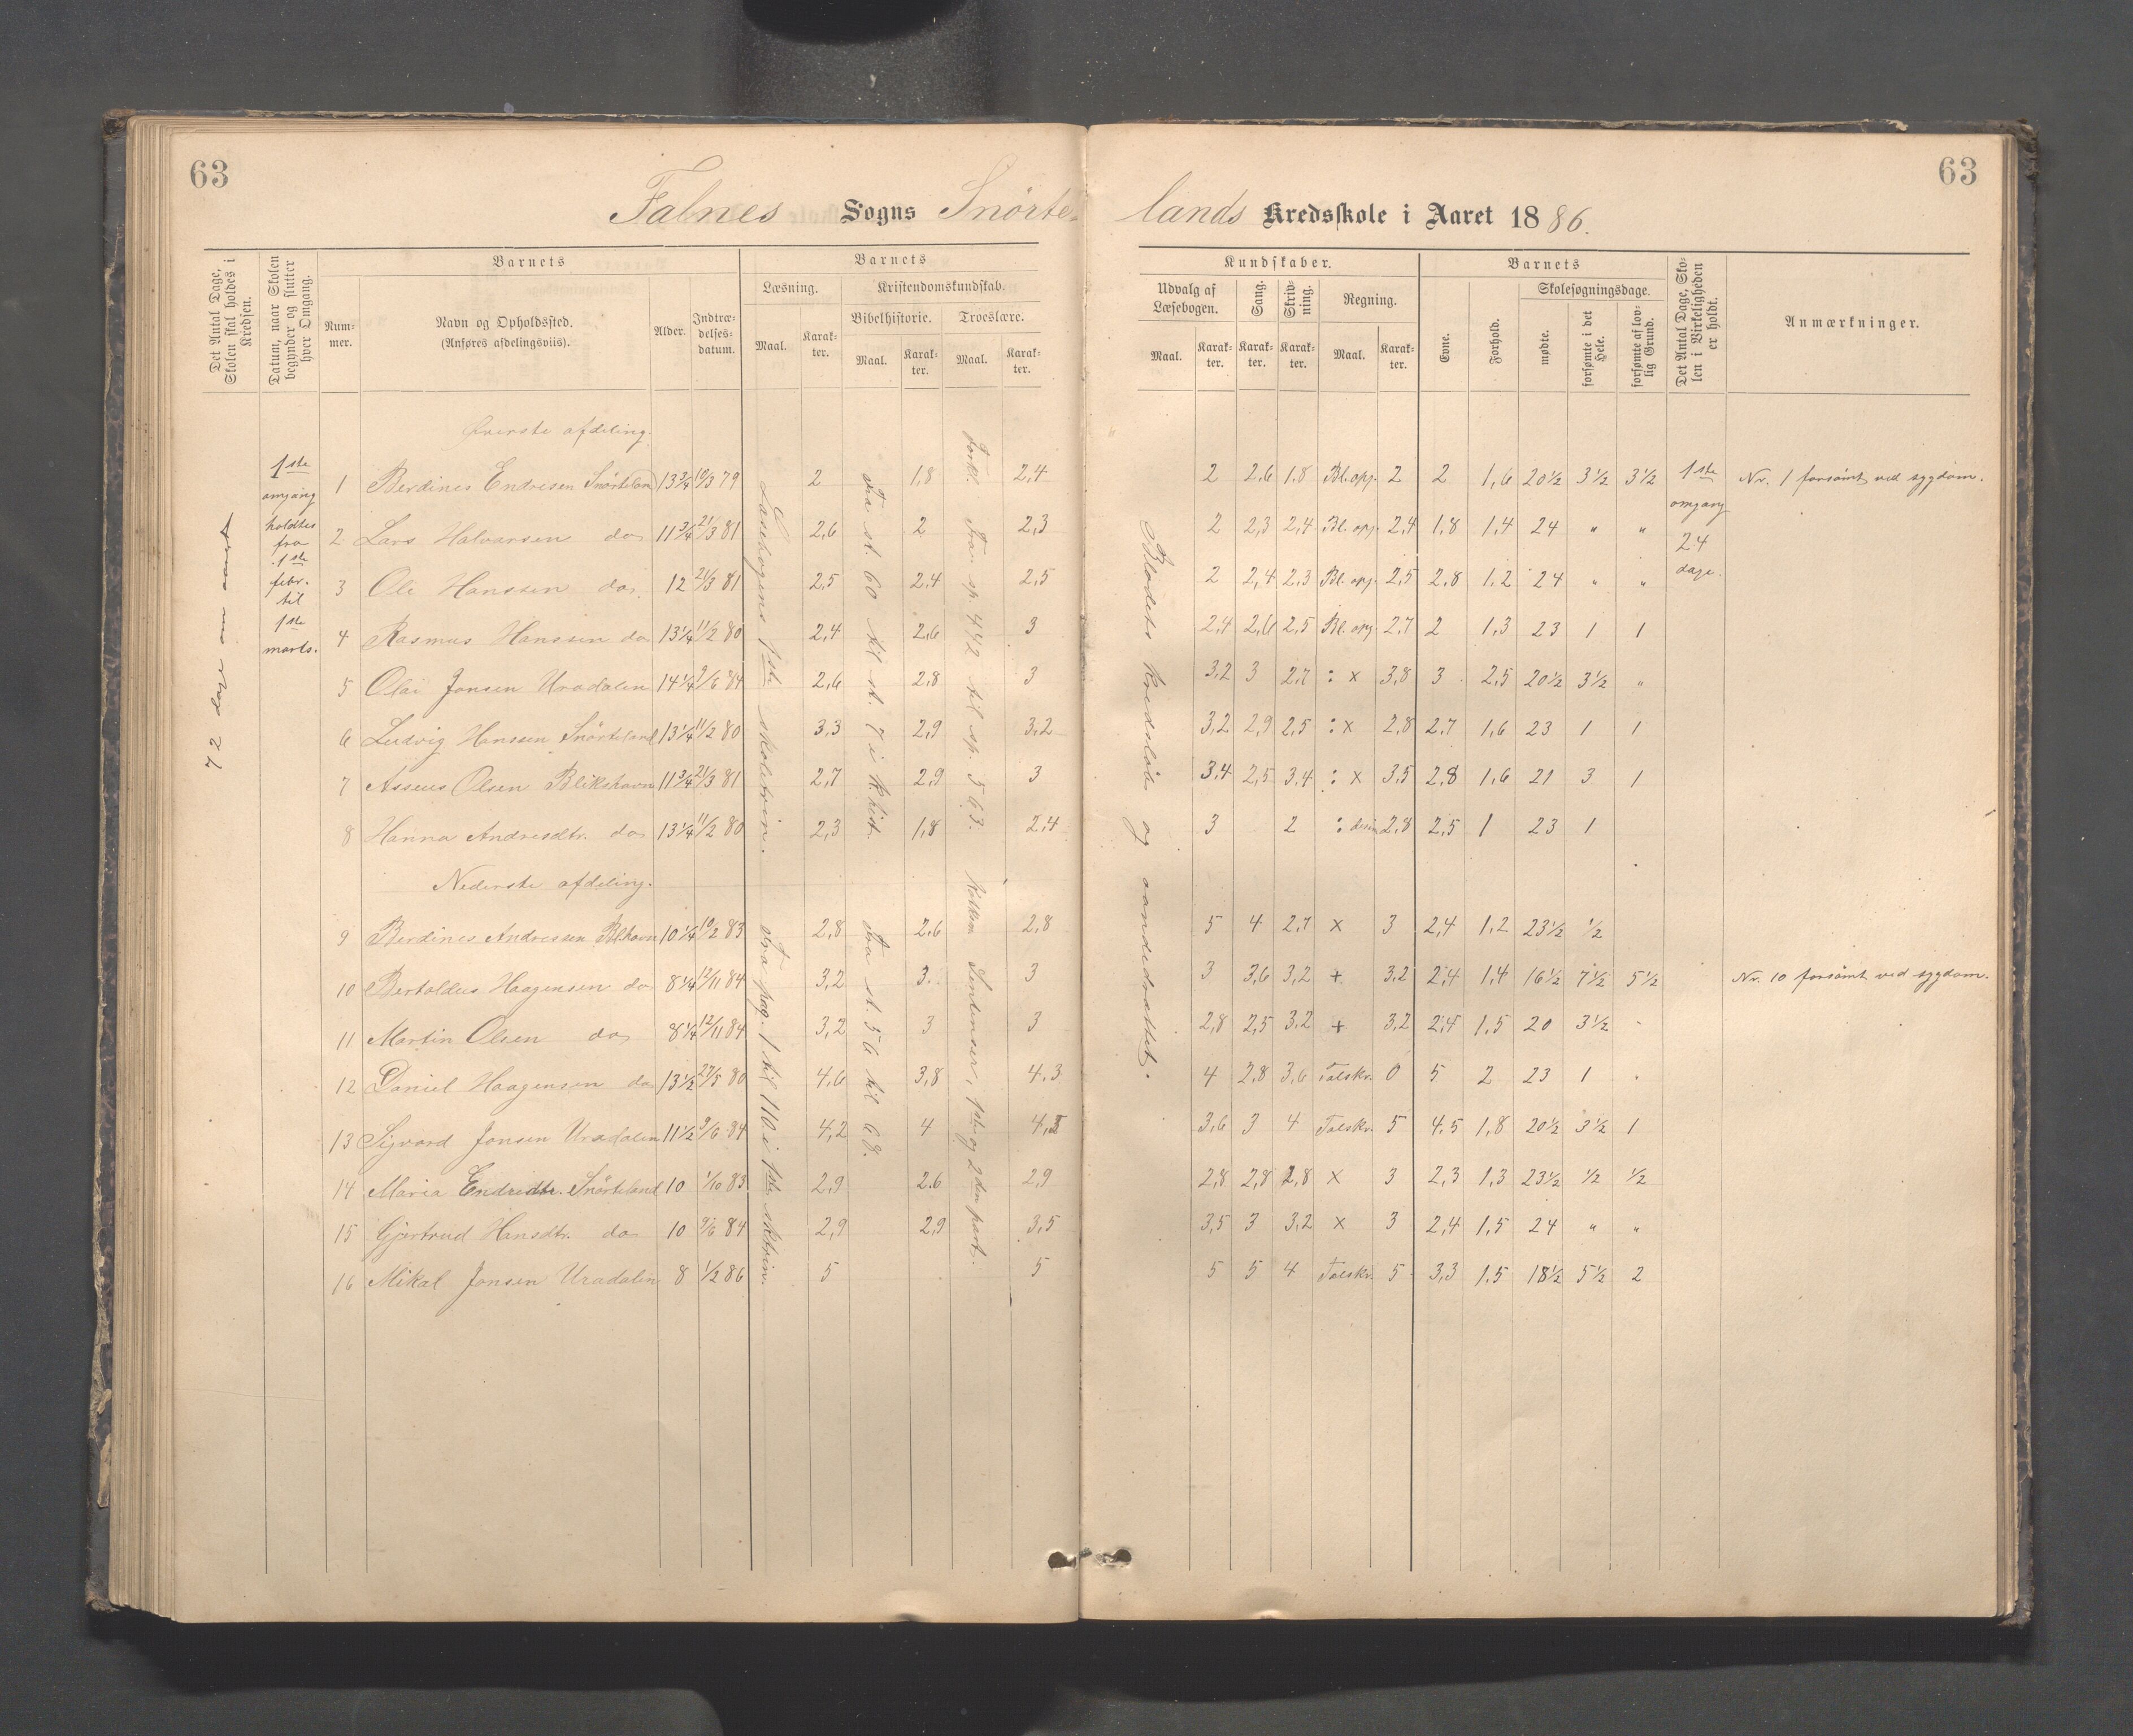 63
63
Falnes Sogns Snörte- lands Kredsskole i Aaret 1886.
Det Antal Dage, Skolen skal holdes i Kredsen.
Datum, naar Skolen begynder og slutter hver Omgang.
Barnets
Num-mer.
Navn og Opholdssted.
(Anføres afdelingsviis).
Alder.
Indtræ-delses-datum.
Barnets
Læsning.
Kristendomskundskab.
Bibelhistorie.
Troeslære.
Maal.
Karak-ter.
Maal.
Karak-ter.
Maal.
Karak-ter.
Kundskaber.
Udvalg af Læsebogen.
Sang.
Skriv-ning.
Regning.
Maal.
Karak-ter.
Karak-ter.
Karak-ter.
Maal.
Karak-ter.
Barnets
Evne.
Forhold.
Skolesøgningsdage.
mødte.
forsømte i det Hele.
forsømte af lov-lig Grund.
Det Antal Dage, Sko-len i Virkeligheden er holdt.
Anmærkninger.
72 dage om aaret
1ste omgang holdtes fra 1ste febr. til 1ste marts.
Læsebogens 1ste skoletrin.
Fra st. 60 til st. 7 i K.hist.
Forkl. Fra sp. 442 til sp. 563.
Blodets kredsløb og aandedrættet.
1ste omgang 24 dage.
Øverste afdeling.
1 Berdines Endresen Snörteland 13 3/4 10/3 79 2 1,8 2,4 2 2,6 1,8 Bl. opg. 2 2 1,6 20 1/2 3 1/2 3 1/2 Nr. 1 forsömt ved sygdom.
2 Lars Halvarsen do 11 3/4 21/3 81 2,6 2 2,3 2 2,3 2,4 Bl. opg. 2,4 1,8 1,4 24 " "
3 Ole Hanssen do 12 21/3 81 2,5 2,4 2,5 2 2,4 2,3 Bl. opg. 2,5 2,8 1,2 24 " "
4 Rasmus Hanssen do 13 1/4 11/2 80 2,4 2,6 3 2,4 2,6 2,5 Bl. opg. 2,7 2 1,3 23 1 1
5 Olai Jonsen Uradalen 14 1/4 9/6 84 2,6 2,8 3 3,2 3 2,7 : x 3,8 3 2,5 20 1/2 3 1/2 "
6 Ludvig Hanssen Snörteland 13 1/4 11/2 80 3,3 2,9 3,2 3,2 2,9 2,5 : x 2,8 2,7 1,6 23 1 1
7 Asseus Olsen Blikshavn 11 3/4 21/3 81 2,7 2,9 3 3,4 2,5 3,4 : x 3,5 2,8 1,6 21 3 1
8 Hanna Andresdtr. do 13 1/4 11/2 80 2,3 1,8 2,4 3 2 : 2,8 2,5 1 23 1
Nederste afdeling.
Fra pag. 1 til 110 i 1ste sktrin.
Fra st. 56 til 68.
Sentenser, 1ste og 2den part.
9 Berdines Andressen Bl.havn 10 1/4 10/2 83 2,8 2,6 2,8 5 4 2,7 x 3 2,4 1,2 23 1/2 1/2
10 Bertoldus Haagensen do 8 1/4 12/11 84 3,2 3 3 3 3,6 3,2 + 3,2 2,4 1,4 16 1/2 7 1/2 5 1/2 Nr. 10 forsömt ved sygdom.
11 Martin Olsen do 8 1/4 12/11 84 3,2 3 3 2,8 2,5 3,2 + 3,2 2,4 1,5 20 3 1/2 -
12 Daniel Haagensen do 13 1/2 27/5 80 4,6 3,8 4,3 4 2,8 3,6 Talskr. 0 5 2 23 1 .
13 Sigvard Jonsen Uradalen 11 1/2 9/6 84 4,2 4 3,6 3 4 Talskr. 5 4,5 1,8 20 1/2 3 1/2 1
14 Maria Endredtr. Snörteland 10 1/10 83 2,9 2,6 2,9 2,8 2,8 2,8 x 3 2,3 1,3 23 1/2 1/2 1/2
15 Gjertrud Hansdtr. do 10 9/6 84 2,9 2,9 3,5 3,5 3 3,2 x 3 2,4 1,5 24 " "
16 Mikal Jonsen Uradalen 8 1/2 86 5 5 5 5 4 Talskr. 5 3,3 1,5 18 1/2 5 1/2 2